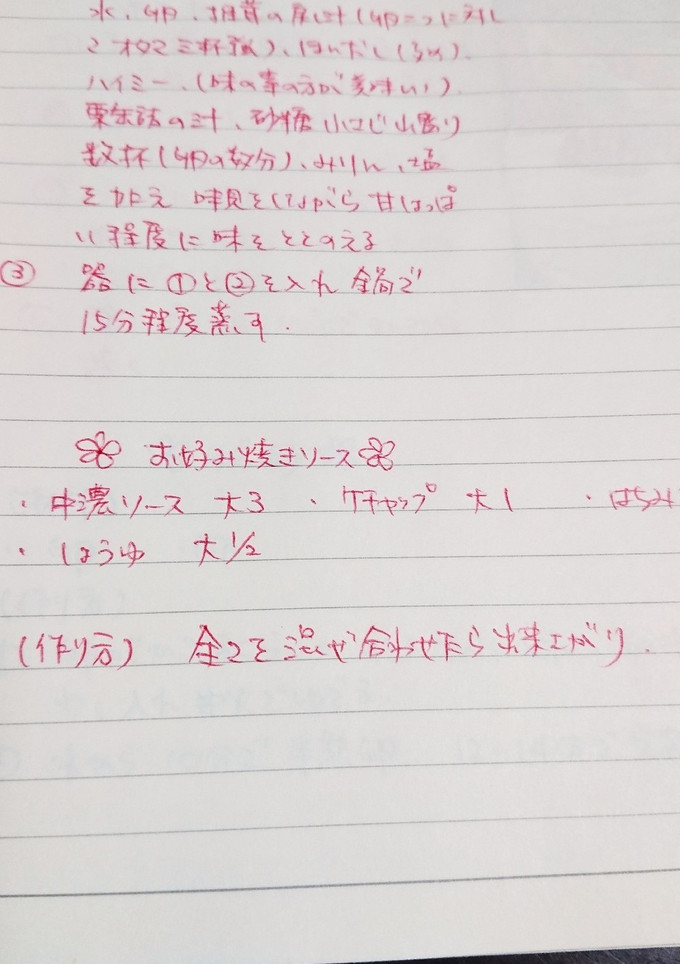 水、卵、椎茸の戻し汁(卵=つに対し
ハイミー、(味の素の方が美味い)
栗缶詰の汁、砂糖小さじ山盛り
数杯(卵の数分)、みりん、塩
を加え 味見をしながら甘じょっぱ
い程度に味をととのえる
③ 器に①と②を入れ 鍋で
15分程度蒸す.
お好み焼きソース
・中濃ソース 大3 ・ケチャップ 大1 ・はちみ
・しょうゆ 大1/2
(作り方) 全てを混ぜ合わせたら出来上がり.